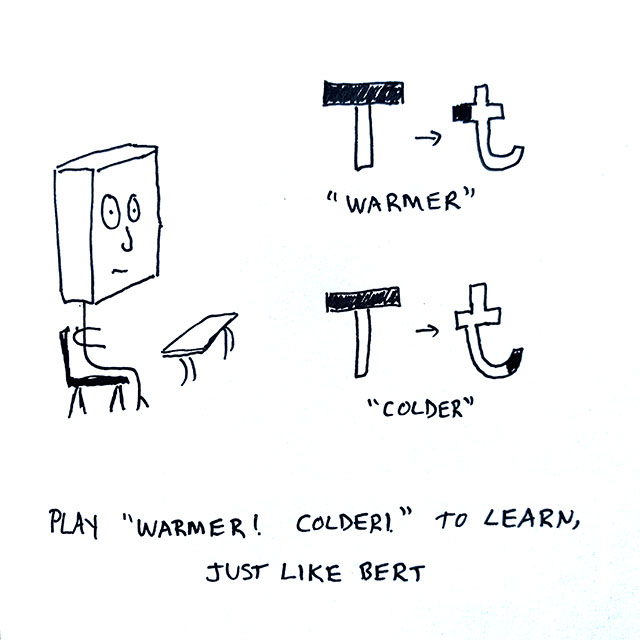 T → t
"WARMER"
T → t
"COLDER"
PLAY "WARMER! COLDER!" TO LEARN,
JUST LIKE BERT